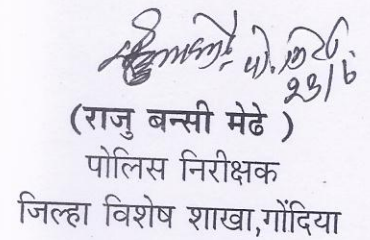 पो. निरी.
23/6
(राजु बन्सी मेढे )
पोलिस निरीक्षक
जिल्हा विशेष शाखा,गोंदिया